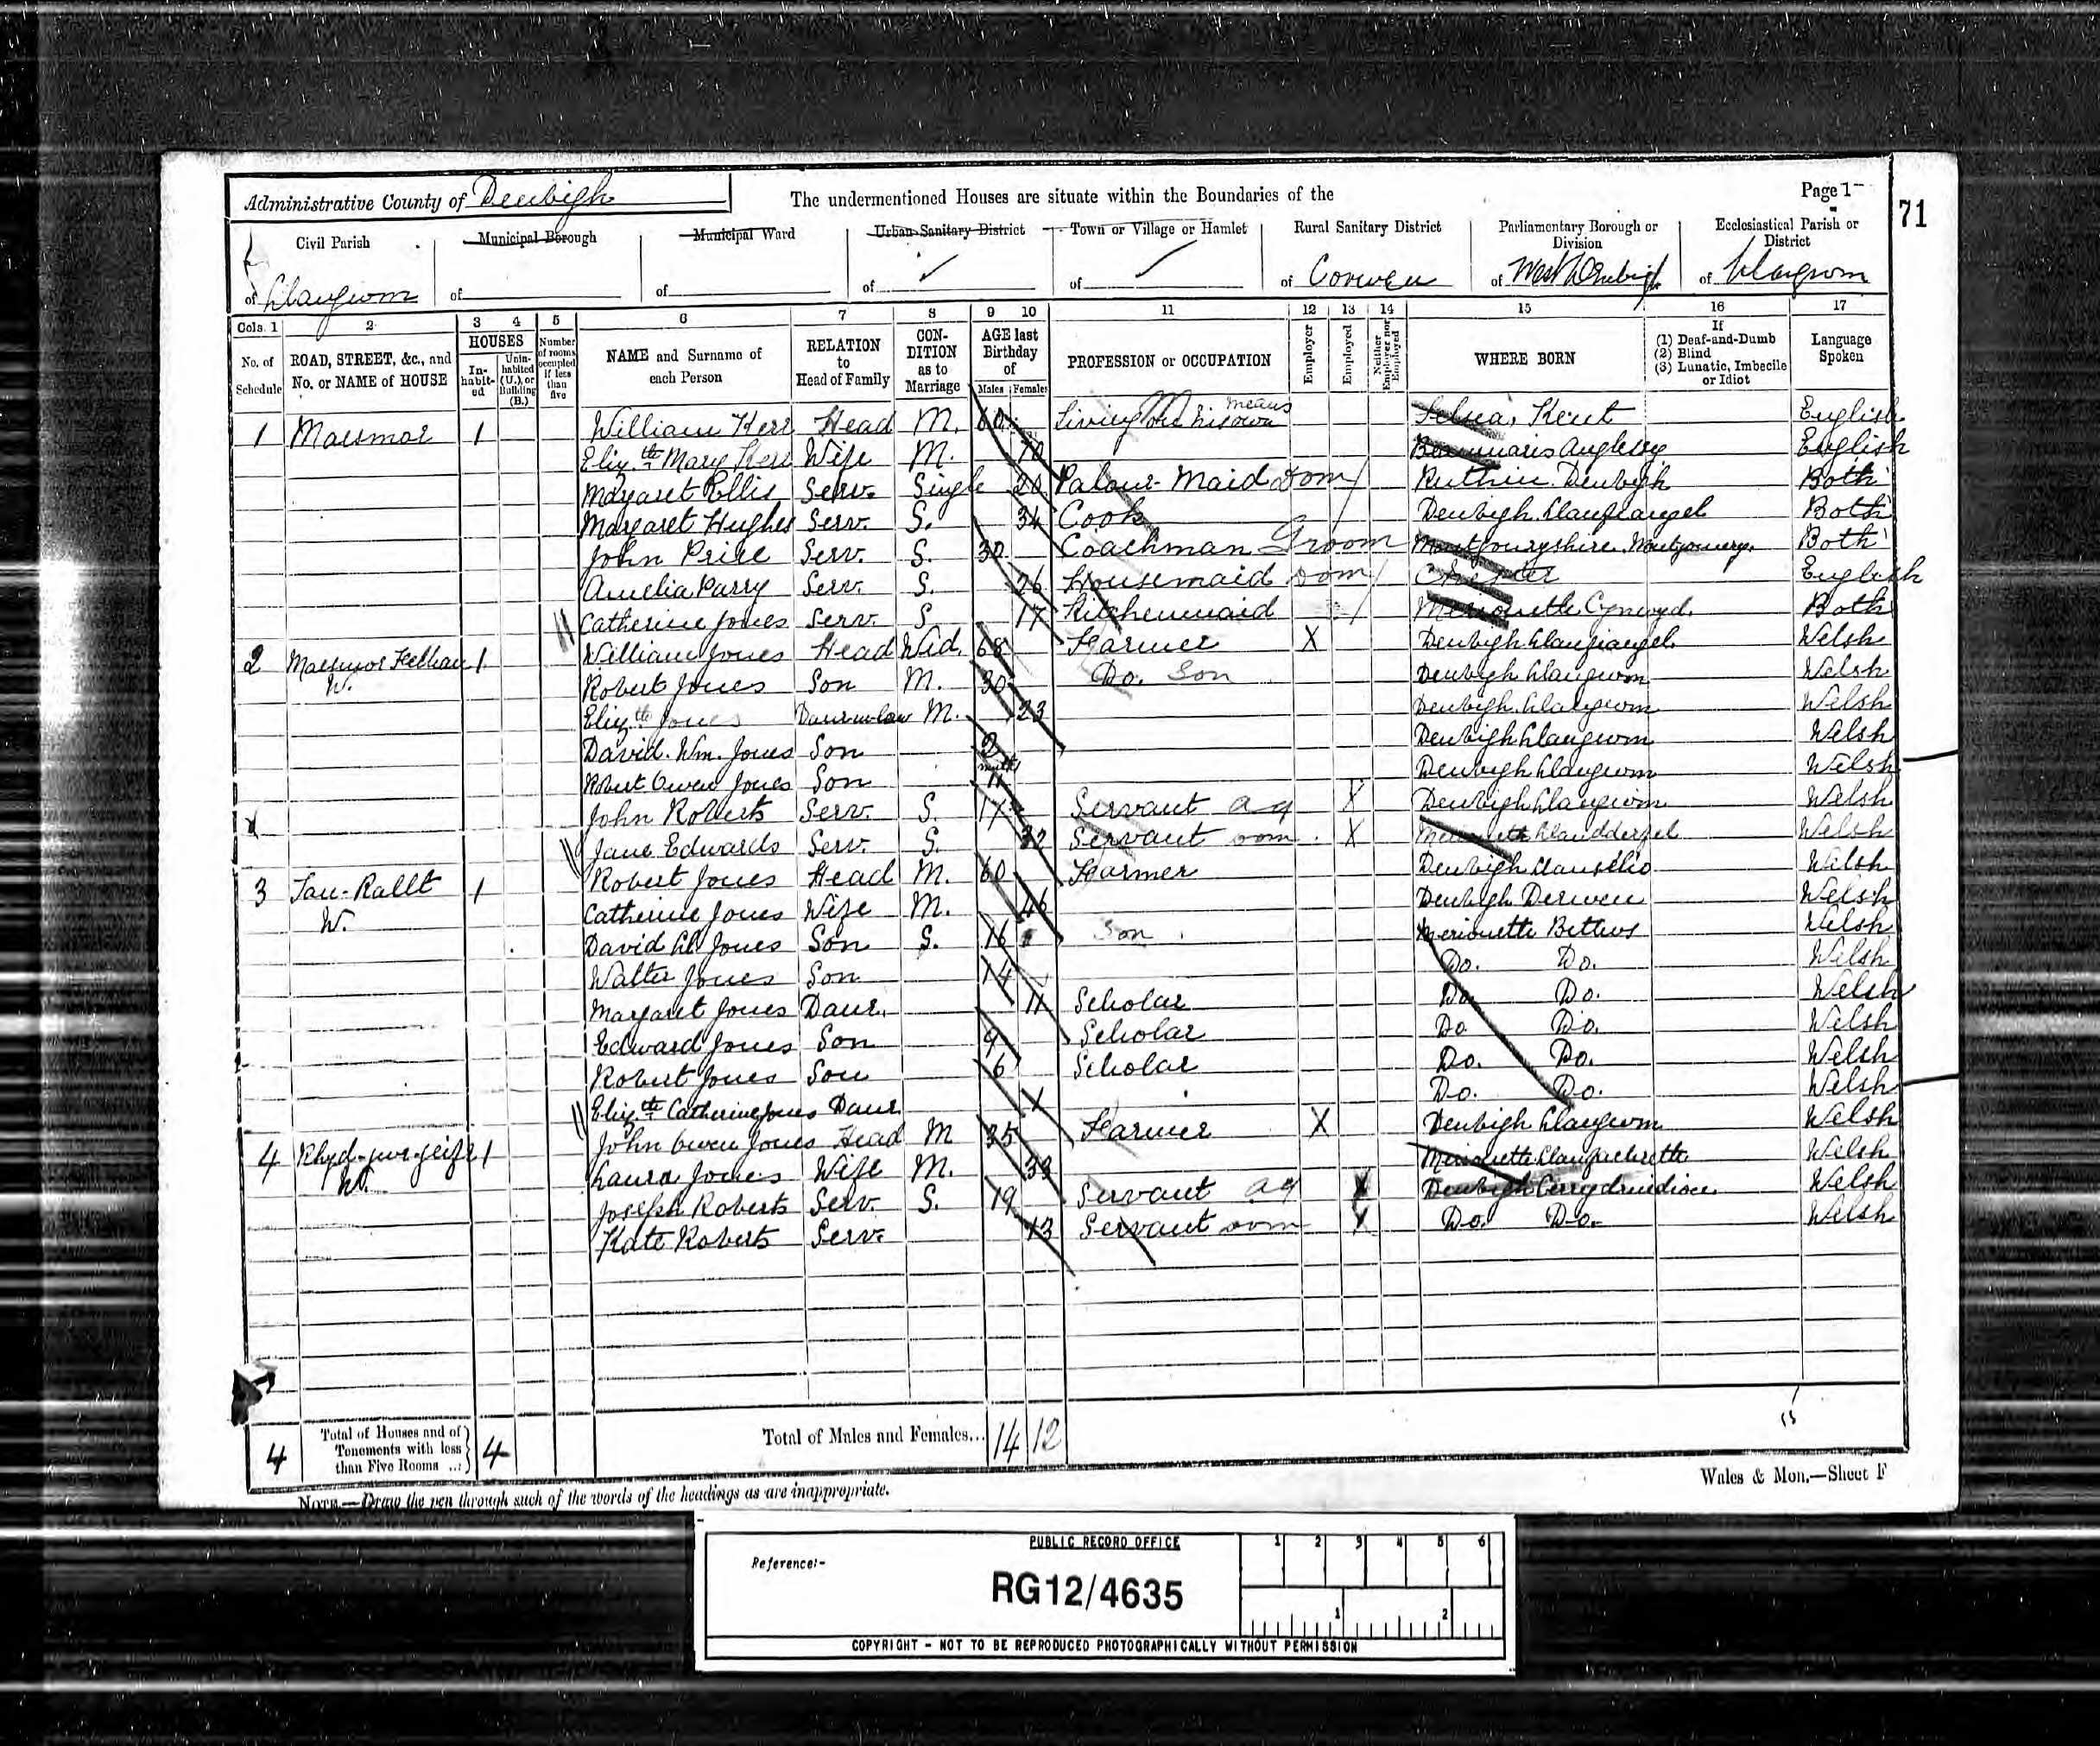 Administrative County of Denbigh
The undermentioned Houses are situate within the Boundaries of the
Page 1
71
Civil Parish
Municipal Borough
Municipal Ward
Urban Sanitary District
Town or Village or Hamlet
Rural Sanitary District
Parliamentary Borough or Division
Ecclesiastical Parish or District
of Llangwm
of
of
of
of
of Corwen
of West Denbigh
of Llangwm
Cols. 1 2 3 4 5 6 7 8 9 10 11 12 13 14 15 16 17
No. of Schedule
ROAD, STREET, &c., and No. or NAME of HOUSE
HOUSES
In-habit-ed
Unin-habited (U.), or Building (B.)
Number of rooms occupied if less than five
NAME and Surname of each Person
RELATION to Head of Family
CON-DITION as to Marriage
AGE last Birthday of
Males Females
PROFESSION or OCCUPATION
Employer
Employed
Neither Employer nor Employed
WHERE BORN
If (1) Deaf-and-Dumb (2) Blind (3) Lunatic, Imbecile or Idiot
Language Spoken
1 Maesmor 1 William Kerr Head M. 60 Living on his own means Kent English
Eliz.th Mary Kerr Wife M. 70 Beaumaris Anglesey English
Margaret Ellis Serv. Single 20 Palour-Maid Dom / Ruthin Denbigh Both
Margaret Hughes Serv. S. 34 Cook Denbigh Llanfiangel Both
John Price Serv. S. 30 Coachman Groom Montgomryshire. Montgomery. Both
Amelia Parry Serv. S. 26 Housemaid Dom / Chester English
Catherine Jones Serv. S. 17 Kitchenmaid / Merionette Cynwyd. Both
2 Maesmor 1 William Jones Head Wid. 68 Farmer X Denbigh Llanfiangel. Welsh
W. Robert Jones Son M. 30 Do. Son Denbigh Llangwm Welsh
Eliz.th Jones Daur in law M. 23 Denbigh. Llangwm Welsh
David. Wm. Jones Son 2 Denbigh Llangwm Welsh
Robert Owen Jones Son mths 11 Denbigh Llangwm Welsh
John Roberts Serv. S. 17 Servant ag X Denbigh Llangwm Welsh
Jane Edwards Serv. S. 32 Servant Dom. X Merionette Llandderfel Welsh
3 Tan-Rallt 1 Robert Jones Head M. 60 Farmer Denbigh Llansilio Welsh
W. Catherine Jones Wife M. 46 Denbigh Derwen Welsh
David Ll Jones Son S. 16 Son Merionette Bettws Welsh
Walter Jones Son 14 Do. Do. Welsh
Margaret Jones Daur. 11 Scholar Do. Do. Welsh
Edward Jones Son 9 Scholar Do Do. Welsh
Robert Jones Son 6 Scholar Do. Do. Welsh
Eliz.th Catherine Jones Daur 1 Do. Do. Welsh
4 1 John Owen Jones Head M 35 Farmer X Denbigh Llangwm Welsh
W. Laura Jones Wife M. 33 Merionette Welsh
Joseph Roberts Serv. S. 19 Servant ag X Denbigh Cerrydruidion. Welsh
Kate Roberts Serv. 13 Servant Dom X Do. Do. Welsh
4 Total of Houses and of Tenements with less than Five Rooms 4
Total of Males and Females... 14 12
NOTE.—Draw the pen through such of the words of the headings as are inappropriate.
Wales & Mon.—Sheet F
PUBLIC RECORD OFFICE
Reference:-
RG12/4635
1 2 3 4 5 6
1 2
COPYRIGHT - NOT TO BE REPRODUCED PHOTOGRAPHICALLY WITHOUT PERMISSION